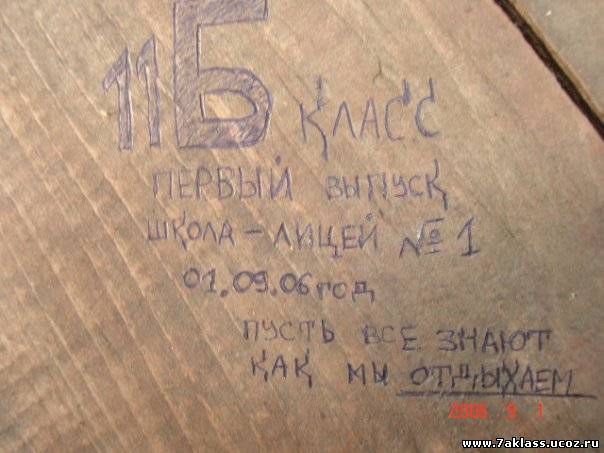 11Б класс
ПЕРВЫЙ ВЫПУСК
ШКОЛА-ЛИЦЕЙ №1
01.09.06 год
ПУСТЬ ВСЕ ЗНАЮТ
КАК МЫ ОТДЫХАЕМ
2006 9 1
www.7aklass.ucoz.ru